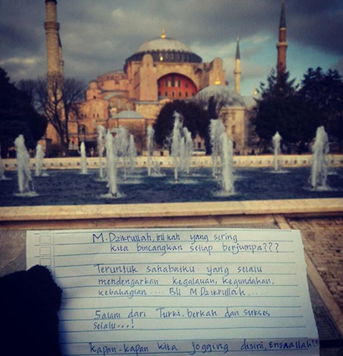 M. Dzikrullah, inikah yang sering
kita bincangkan setiap berjumpa???
Teruntuk sahabatku yang selalu
mendengarkan kegalauan, kegundahan,
kebahagian .... Bli M Dzikrullah
Salam dari Turki, berkah dan sukses
selalu...!
Kapan-kapan kita jogging disini, Ensaallah!!